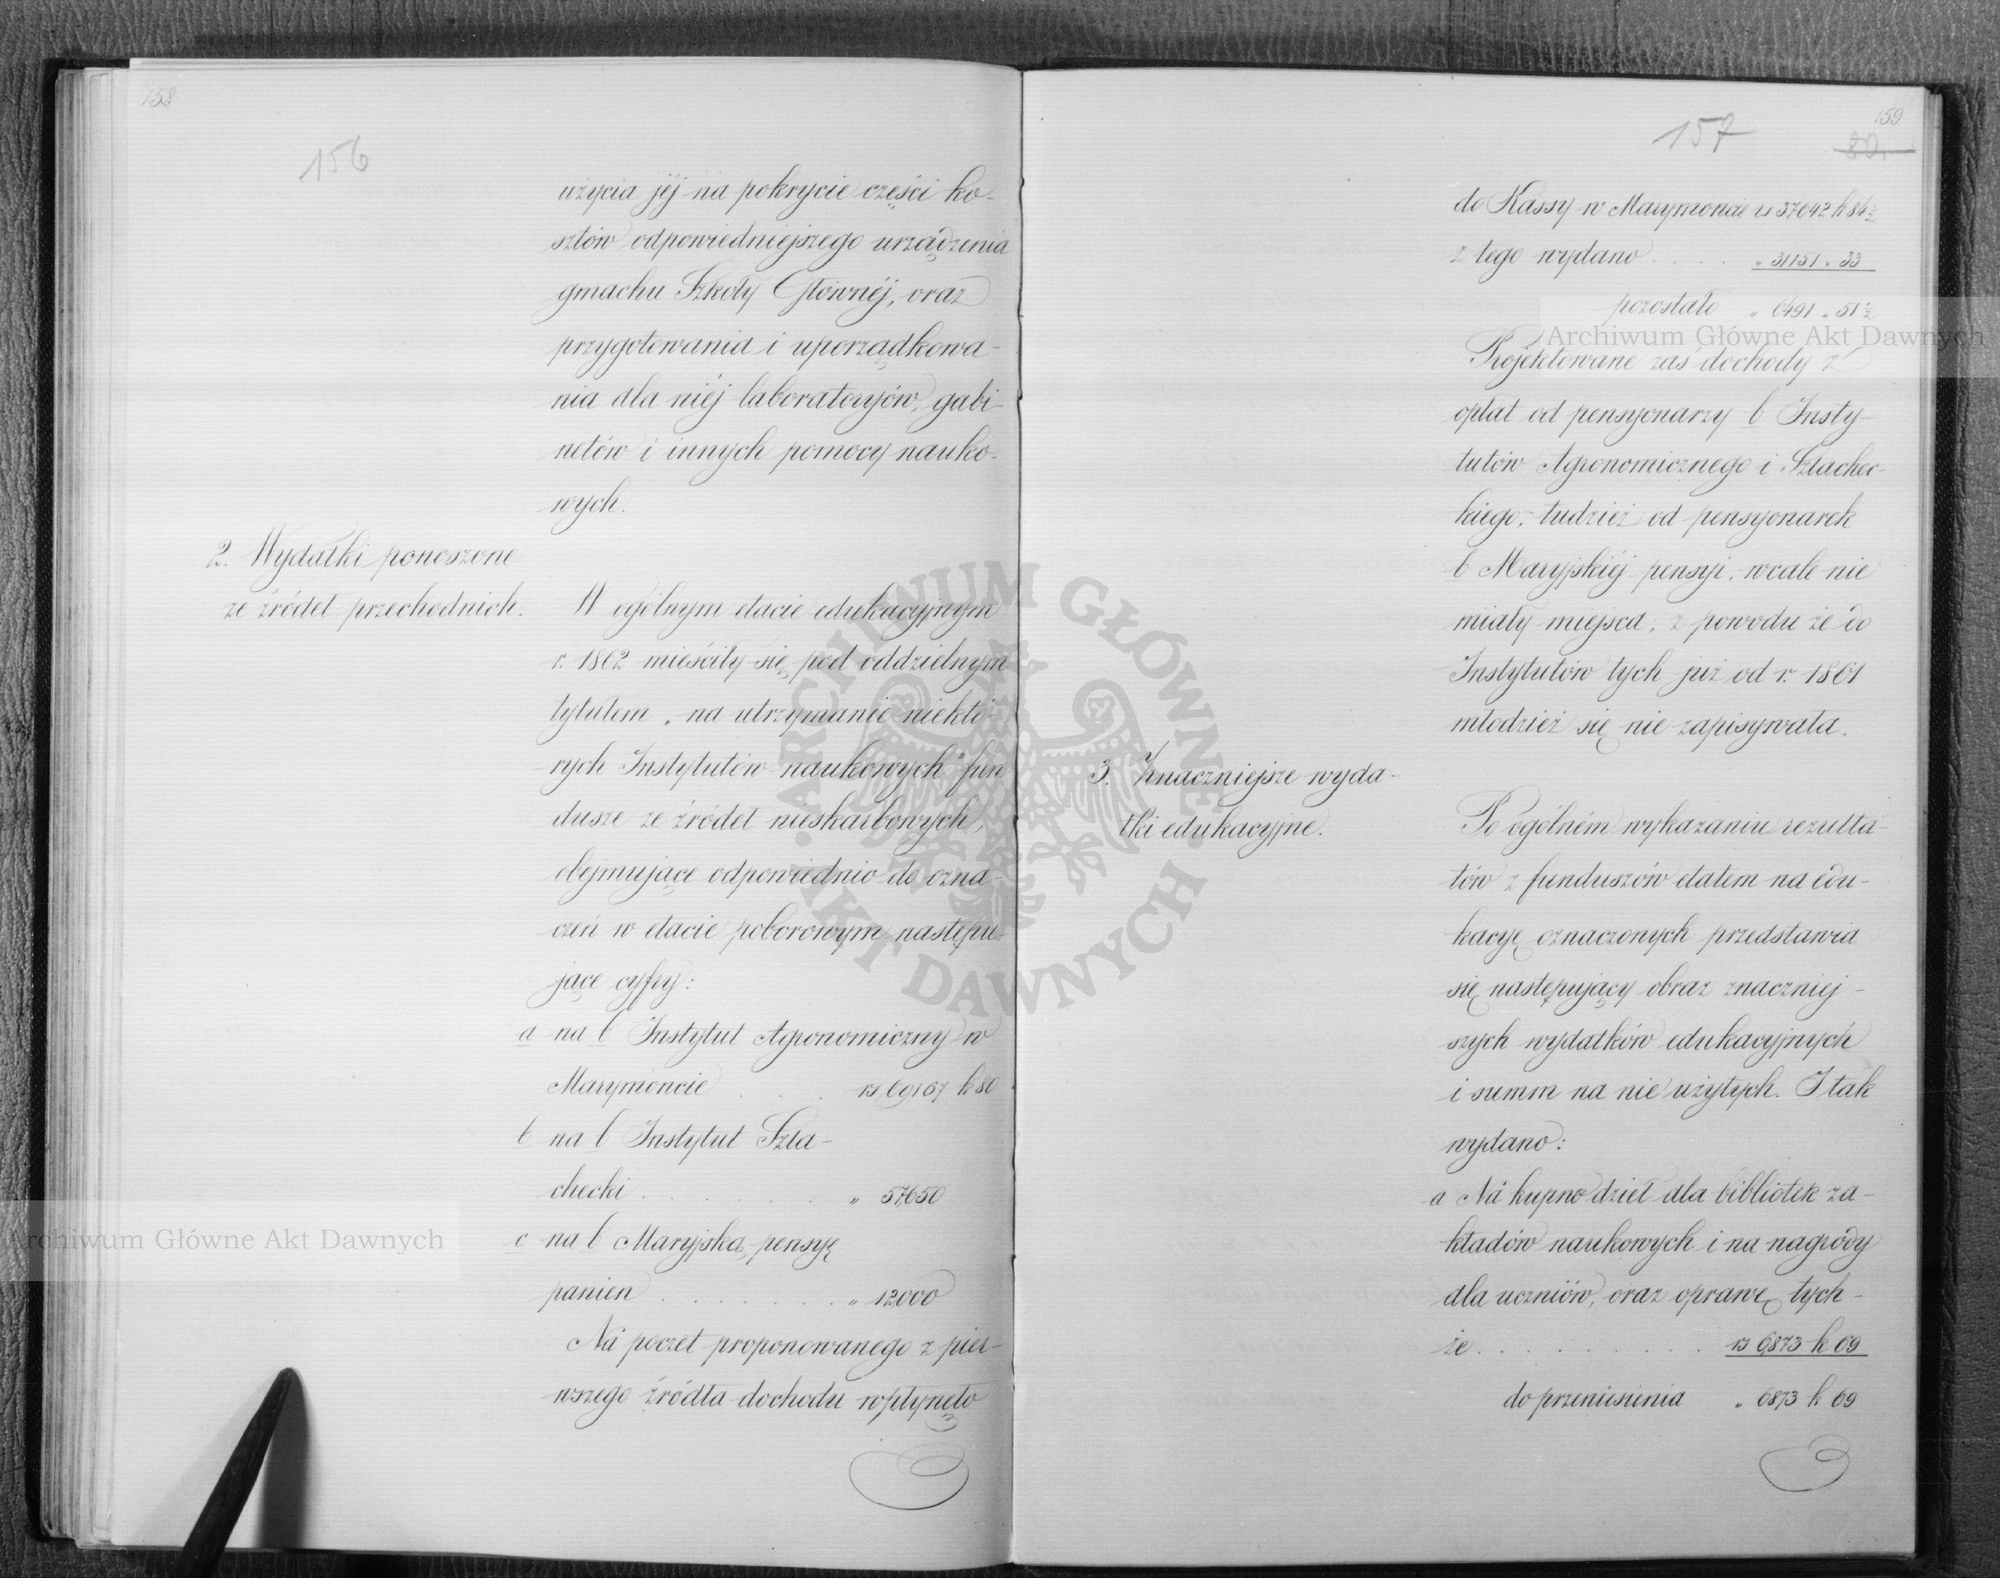 158
156
użycia jéj na pokrycie części ko-
sztów odpowiedniejszego urządzenia
gmachu Szkoły Głównéj, oraz
przygotowania i uporządkowa-
nia dla niéj laboratoryjów, gabi-
netów i innych pomocy nauko-
wych.
2. Wydatki ponoszone
ze źródeł przechodnich.
W ogólnym etacie edukacyjnym
r. 1862 mieściły się pod oddzielnym
tytułem „na utrzymanie niektó-
rych Instytutów naukowych" fun
dusze ze źródeł nieskarbowych,
obejmujące odpowiednio do ozna-
czeń w etacie poborowym następu-
jące cyfry:
a na b Instytut Agronomiczny w
Marymoncie . . . rs 69167 k 80
b na b Instytut Szla-
checki . . . . . . . „ 57,650
c na b Maryjską pensyę
panien . . . . . . . „ 12,000
Na poczet proponowanego z pier-
wszego źródła dochodu wpłynęło
159
157
80.
do Kassy w Marymoncie rs 37642 k 84½
z tego wydano . . . . „ 31151 „ 33
pozostało „ 6491 „ 51½
Projektowane zaś dochody z
opłat od pensyonarzy b Insty-
tutów Agronomicznego i Szlachec-
kiego, tudzież od pensyonarek
b Maryjskiéj pensyi, wcale nie
miały miejsca, z powodu że do
Instytutów tych już od r. 1861
młodzież się nie zapisywała.
3. Znaczniejsze wyda-
tki edukacyjne.
Po ogólném wykazaniu rezulta-
tów z funduszów etatem na edu-
kacyę oznaczonych przedstawia
się następujący obraz znaczniej-
szych wydatków edukacyjnych
i summ na nie użytych. I tak
wydano:
a Na kupno dzieł dla bibliotek za-
kładów naukowych i na nagrody
dla uczniów, oraz oprawę tych-
że . . . . . . . . . . rs 6,873 k 69
do przeniesienia „ 6873 k 69
Archiwum Główne Akt Dawnych
Archiwum Główne Akt Dawnych
ARCHIWUM GŁÓWNE AKT DAWNYCH